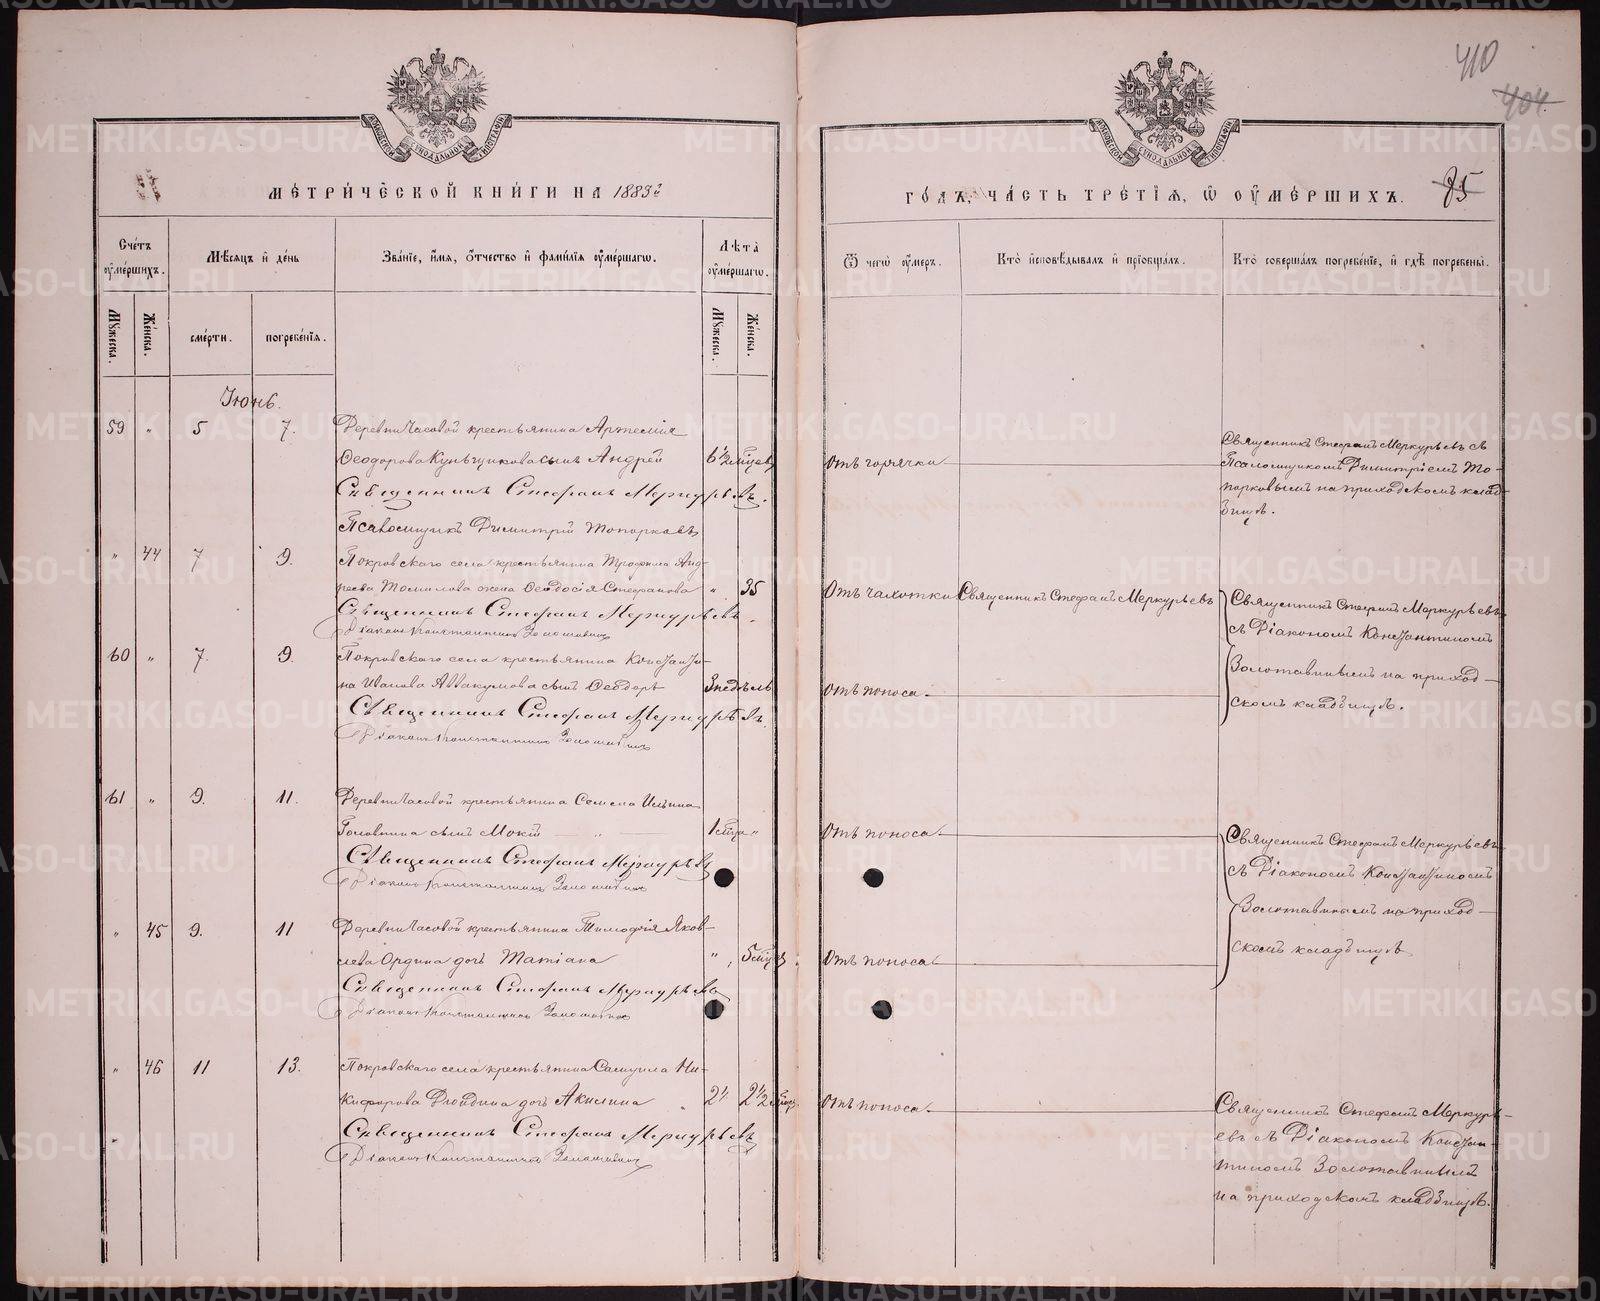 410
404.
МЕТРИЧЕСКОЙ КНИГИ НА 1883й
ГОДЪ, ЧАСТЬ ТРЕТІЯ, Ѿ ОУМЕРШИХЪ.
85
Счетъ оумершихъ.
Мѣсяцъ и день
Званіе, имя, отчество и фамилія оумершаго.
Лѣта оумершаго.
Ѿ чего оумеръ.
Кто исповѣдывалъ и пріобщалъ.
Кто совершалъ погребеніе, и гдѣ погребены.
Мужеска.
Женска.
смерти.
погребенія.
Мужеска.
Женска.
Іюнь.
59 " 5 7. Деревни Часовой крестьянина Артемія
Ѳеодорова Кунгщикова сынъ Андрей 6½ мѣсяцевъ
Отъ горячки
Священникъ Стефанъ Меркурьевъ съ
Псаломщикомъ Димитріемъ То-
порковымъ на приходскомъ клад-
бищѣ.
Священникъ Стефанъ Меркурьевъ.
Псаломщикъ Димитрій Топорковъ
" 44 7 9. Покровскаго села крестьянина Трофима Анд-
реева Томилова жена Ѳеодосія Стефанова " 35
Отъ чахотки Священникъ Стефанъ Меркурьевъ
Священникъ Стефанъ Меркурьевъ.
Діаконъ Константинъ Золотавинъ
60 " 7. 9. Покровскаго села крестьянина Константи-
на Иванова Аввакумова сынъ Ѳеодоръ 3 недѣль
Отъ поноса
Священникъ Стефанъ Меркурьевъ
съ Діакономъ Константиномъ
Золотавинымъ на приход-
скомъ кладбищѣ.
Священникъ Стефанъ Меркурьевъ.
Діаконъ Константинъ Золотавинъ
61 " 9. 11. Деревни Часовой крестьянина Семена Ильина
Головина сынъ Мокій " 1 мѣсяца "
Отъ поноса
Священникъ Стефанъ Меркурьевъ
Діаконъ Константинъ Золотавинъ
" 45 9. 11 Деревни Часовой крестьянина Тимофія Яков-
лева Ордина дочь Татіана " 5 мѣсяцев.
Отъ поноса
Священникъ Стефанъ Меркурьевъ
съ Діакономъ Константиномъ
Золотавинымъ на приход-
скомъ кладбищѣ
Священникъ Стефанъ Меркурьевъ
Діаконъ Константинъ Золотавинъ
" 46 11 13. Покровскаго села крестьянина Самуила Ни-
кифорова дочь Акилина 2½ 2½ мѣсяц.
Отъ поноса
Священникъ Стефанъ Меркурь-
евъ съ Діакономъ Констан-
тиномъ Золотавинымъ
на приходскомъ кладбищѣ.
Священникъ Стефанъ Меркурьевъ
Діаконъ Константинъ Золотавинъ
METRIKI.GASO-URAL.RU